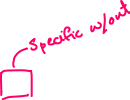 Specific w/out